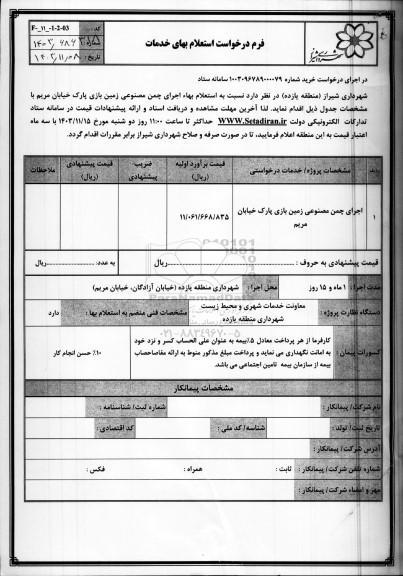 فرم درخواست استعلام بهای خدمات
کد: F-_11_-1-2-03
شماره: ۱۴۰۳/۶۸۶۳
تاریخ: ۱۴۰۳/۱۱/۰۸
در اجرای درخواست خرید شماره ۱۰۰۳۰۹۶۷۸۹۰۰۰۰۷۹ سامانه ستاد
شهرداری شیراز (منطقه یازده) در نظر دارد نسبت به استعلام بهاء اجرای چمن مصنوعی زمین بازی پارک خیابان مریم با
مشخصات جدول ذیل اقدام نماید. لذا آخرین مهلت مشاهده و دریافت اسناد و ارائه پیشنهادات قیمت در سامانه ستاد
تدارکات الکترونیکی دولت WWW.Setadiran.IR حداکثر تا ساعت ۱۱:۰۰ روز دو شنبه مورخ ۱۴۰۳/۱۱/۱۵ با سه ماه
اعتبار قیمت به این منطقه اعلام فرمایید، تا در صورت صرفه و صلاح شهرداری شیراز برابر مقررات اقدام گردد.
ردیف مشخصات پروژه/ خدمات درخواستی قیمت برآورد اولیه (ریال) ضریب پیشنهادی قیمت پیشنهادی (ریال) ملاحظات
۱ اجرای چمن مصنوعی زمین بازی پارک خیابان مریم ۱۱/۰۶۱/۶۶۸/۸۳۵
قیمت پیشنهادی به حروف : ریال به عدد: ریال
مدت اجرا: ۱ ماه و ۱۵ روز محل اجرا: شهرداری منطقه یازده (خیابان آزادگان، خیابان مریم)
دستگاه نظارت پروژه: معاونت خدمات شهری و محیط زیست شهرداری منطقه یازده مشخصات فنی منضم به استعلام بها: دارد
کسورات پیمان: کارفرما از هر پرداخت معادل ۵٪بیمه به عنوان علی الحساب کسر و نزد خود
به امانت نگهداری می نماید و پرداخت مبلغ مذکور منوط به ارائه مفاصاحساب
بیمه از سازمان بیمه تامین اجتماعی می باشد.
۱۰٪ حسن انجام کار
مشخصات پیمانکار
نام شرکت/ پیمانکار: شماره ثبت/ شناسنامه :
تاریخ ثبت/ تولد: شناسه/ کد ملی : کد اقتصادی:
آدرس شرکت/ پیمانکار:
شماره تلفن شرکت/ پیمانکار: ثابت : همراه : فکس :
مهر و امضاء شرکت/ پیمانکار:
۰۲۱-۸۸۳۴۹۶۷۰-۵